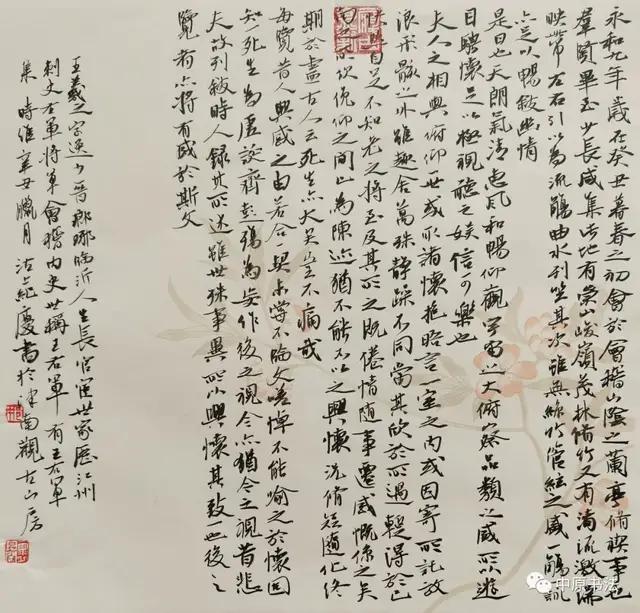 永和九年歲在癸丑暮春之初會於會稽山陰之蘭亭脩禊事也
羣賢畢至少長咸集此地有崇山峻嶺茂林脩竹又有清流激湍
映帶左右引以為流觴曲水列坐其次雖無絲竹管絃之盛一觴一詠
亦足以暢敘幽情
是日也天朗氣清惠風和暢仰觀宇宙之大俯察品類之盛所以遊
目騁懷足以極視聽之娛信可樂也
夫人之相與俯仰一世或取諸懷抱晤言一室之內或因寄所託放
浪形骸之外雖趣舍萬殊靜躁不同當其欣於所遇暫得於己
快然自足不知老之將至及其所之既倦情隨事遷感慨係之矣
向之所欣俛仰之間以為陳迹猶不能不以之興懷況脩短隨化終
期於盡古人云死生亦大矣豈不痛哉
每覽昔人興感之由若合一契未嘗不臨文嗟悼不能喻之於懷固
知一死生為虛誕齊彭殤為妄作後之視今亦猶今之視昔悲
夫故列敘時人錄其所述雖世殊事異所以興懷其致一也後之
覽者亦將有感於斯文
王羲之字逸少晉郎琊臨沂人生長官宦世家歷江州
刺史右軍將軍會稽內史世稱王右軍有王右軍
集 時維辛丑臘月沽上紀慶書於津南觀古山房
中原书法